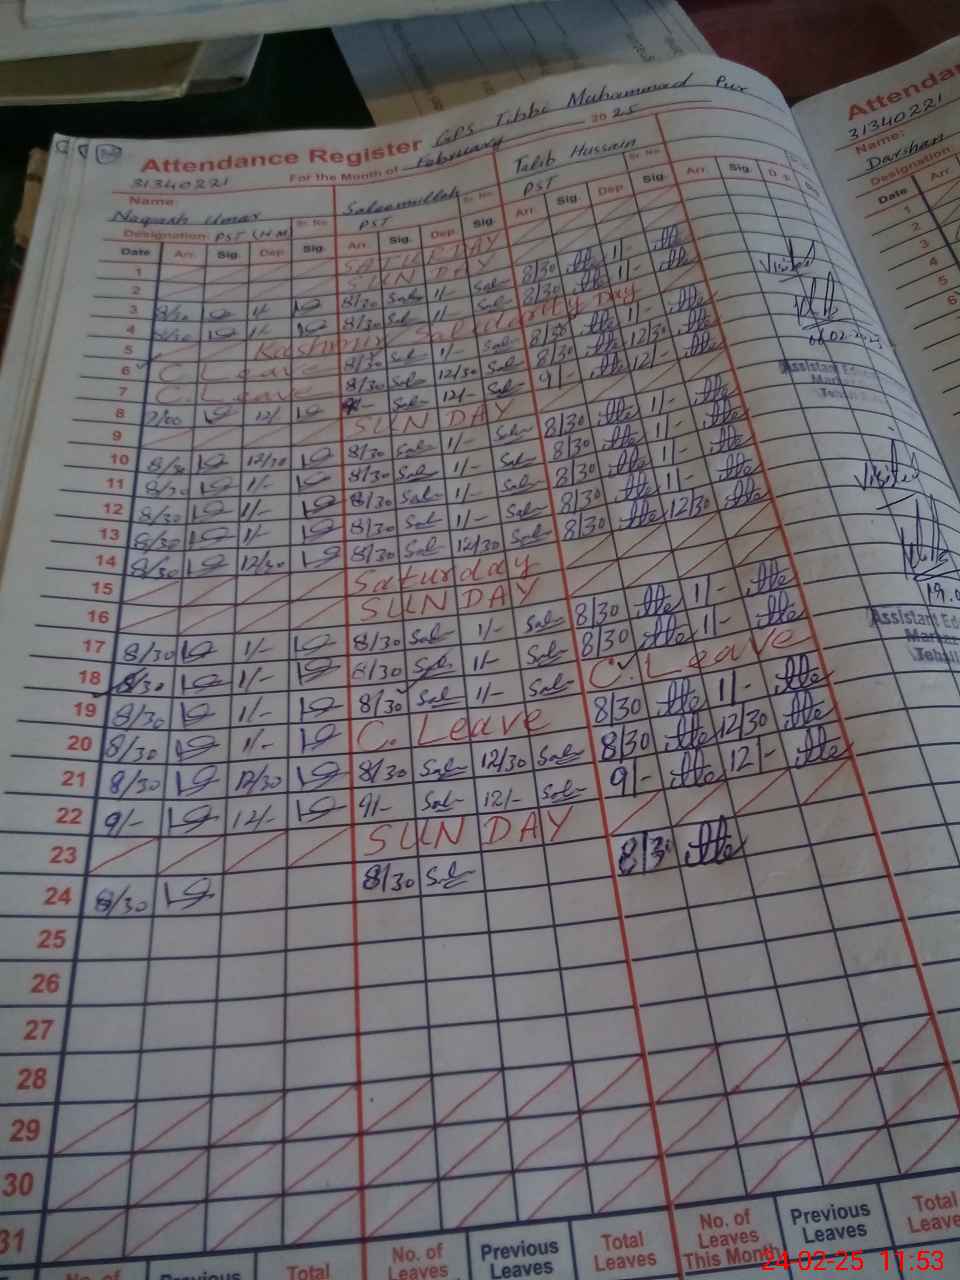 GPS Tibbi Muhammad Pur
Attendance Register
For the Month of February 2025
31340221
Name: Naqash Umar Sr. No. Saleemullah Sr. No. Talib Hussain Sr. No.
Designation: PST (H.M) PST PST
Date Arr. Sig. Dep. Sig. Arr. Sig. Dep. Sig. Arr. Sig. Dep. Sig. Arr. Sig.
1 SATURDAY
2 SUN DAY
3 8/30 1/- 8/30 Sal 1/- Sal 8/30 1/-
4 8/30 1/- 8/30 Sal 1/- Sal 8/30 1/-
5 Kashmir Day
6 C. Leave 8/30 Sal 1/- Sal 8/30 1/-
7 C. Leave 8/30 Sal 12/30 Sal 8/30 12/30
8 9/00 12/ 9/- Sal 12/- Sal 9/- 12/-
9 SUN DAY
10 8/30 12/30 8/30 Sal 1/- Sal 8/30 1/-
11 8/30 1/- 8/30 Sal 1/- Sal 8/30 1/-
12 8/30 1/- 8/30 Sal 1/- Sal 8/30 1/-
13 8/30 1/- 8/30 Sal 1/- Sal 8/30 1/-
14 8/30 12/30 8/30 Sal 12/30 Sal 8/30 12/30
15 Saturday
16 SUN DAY
17 8/30 1/- 8/30 Sal 1/- Sal 8/30 1/-
18 8/30 1/- 8/30 Sal 1/- Sal 8/30 1/-
19 8/30 1/- 8/30 Sal 1/- Sal C. Leave
20 8/30 1/- C. Leave 8/30 1/-
21 8/30 12/30 8/30 Sal 12/30 Sal 8/30 12/30
22 9/- 12/- 9/- Sal 12/- Sal 9/- 12/-
23 SUN DAY
24 8/30 8/30 Sal 8/30
25
26
27
28
29
30
31
No. of Previous Total No. of Leaves Previous Leaves Total Leaves No. of Leaves This Month Previous Leaves Total Leaves
Visited
06-02-2025
Assistant
Visited
19.0
Assistant Ed
Marka
Tehsil
Attendan
31340221
Name:
Darshan
Designation
Date Arr.
1
2
3
4
5
6
24-02-25 11:53